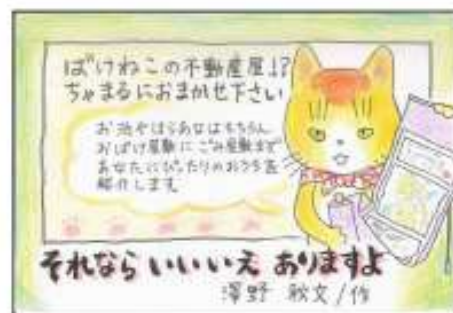 ばけねこの不動産屋!?
ちゃまるにおまかせ下さい
お池やほらあなはもちろん
おばけ屋敷にごみ屋敷まで
あなたにぴったりのおうちを
紹介します
それなら いいいえ ありますよ
澤野 秋文/作